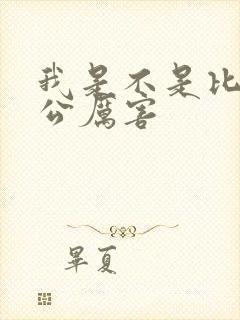 我是不是比
公厲害
畢夏